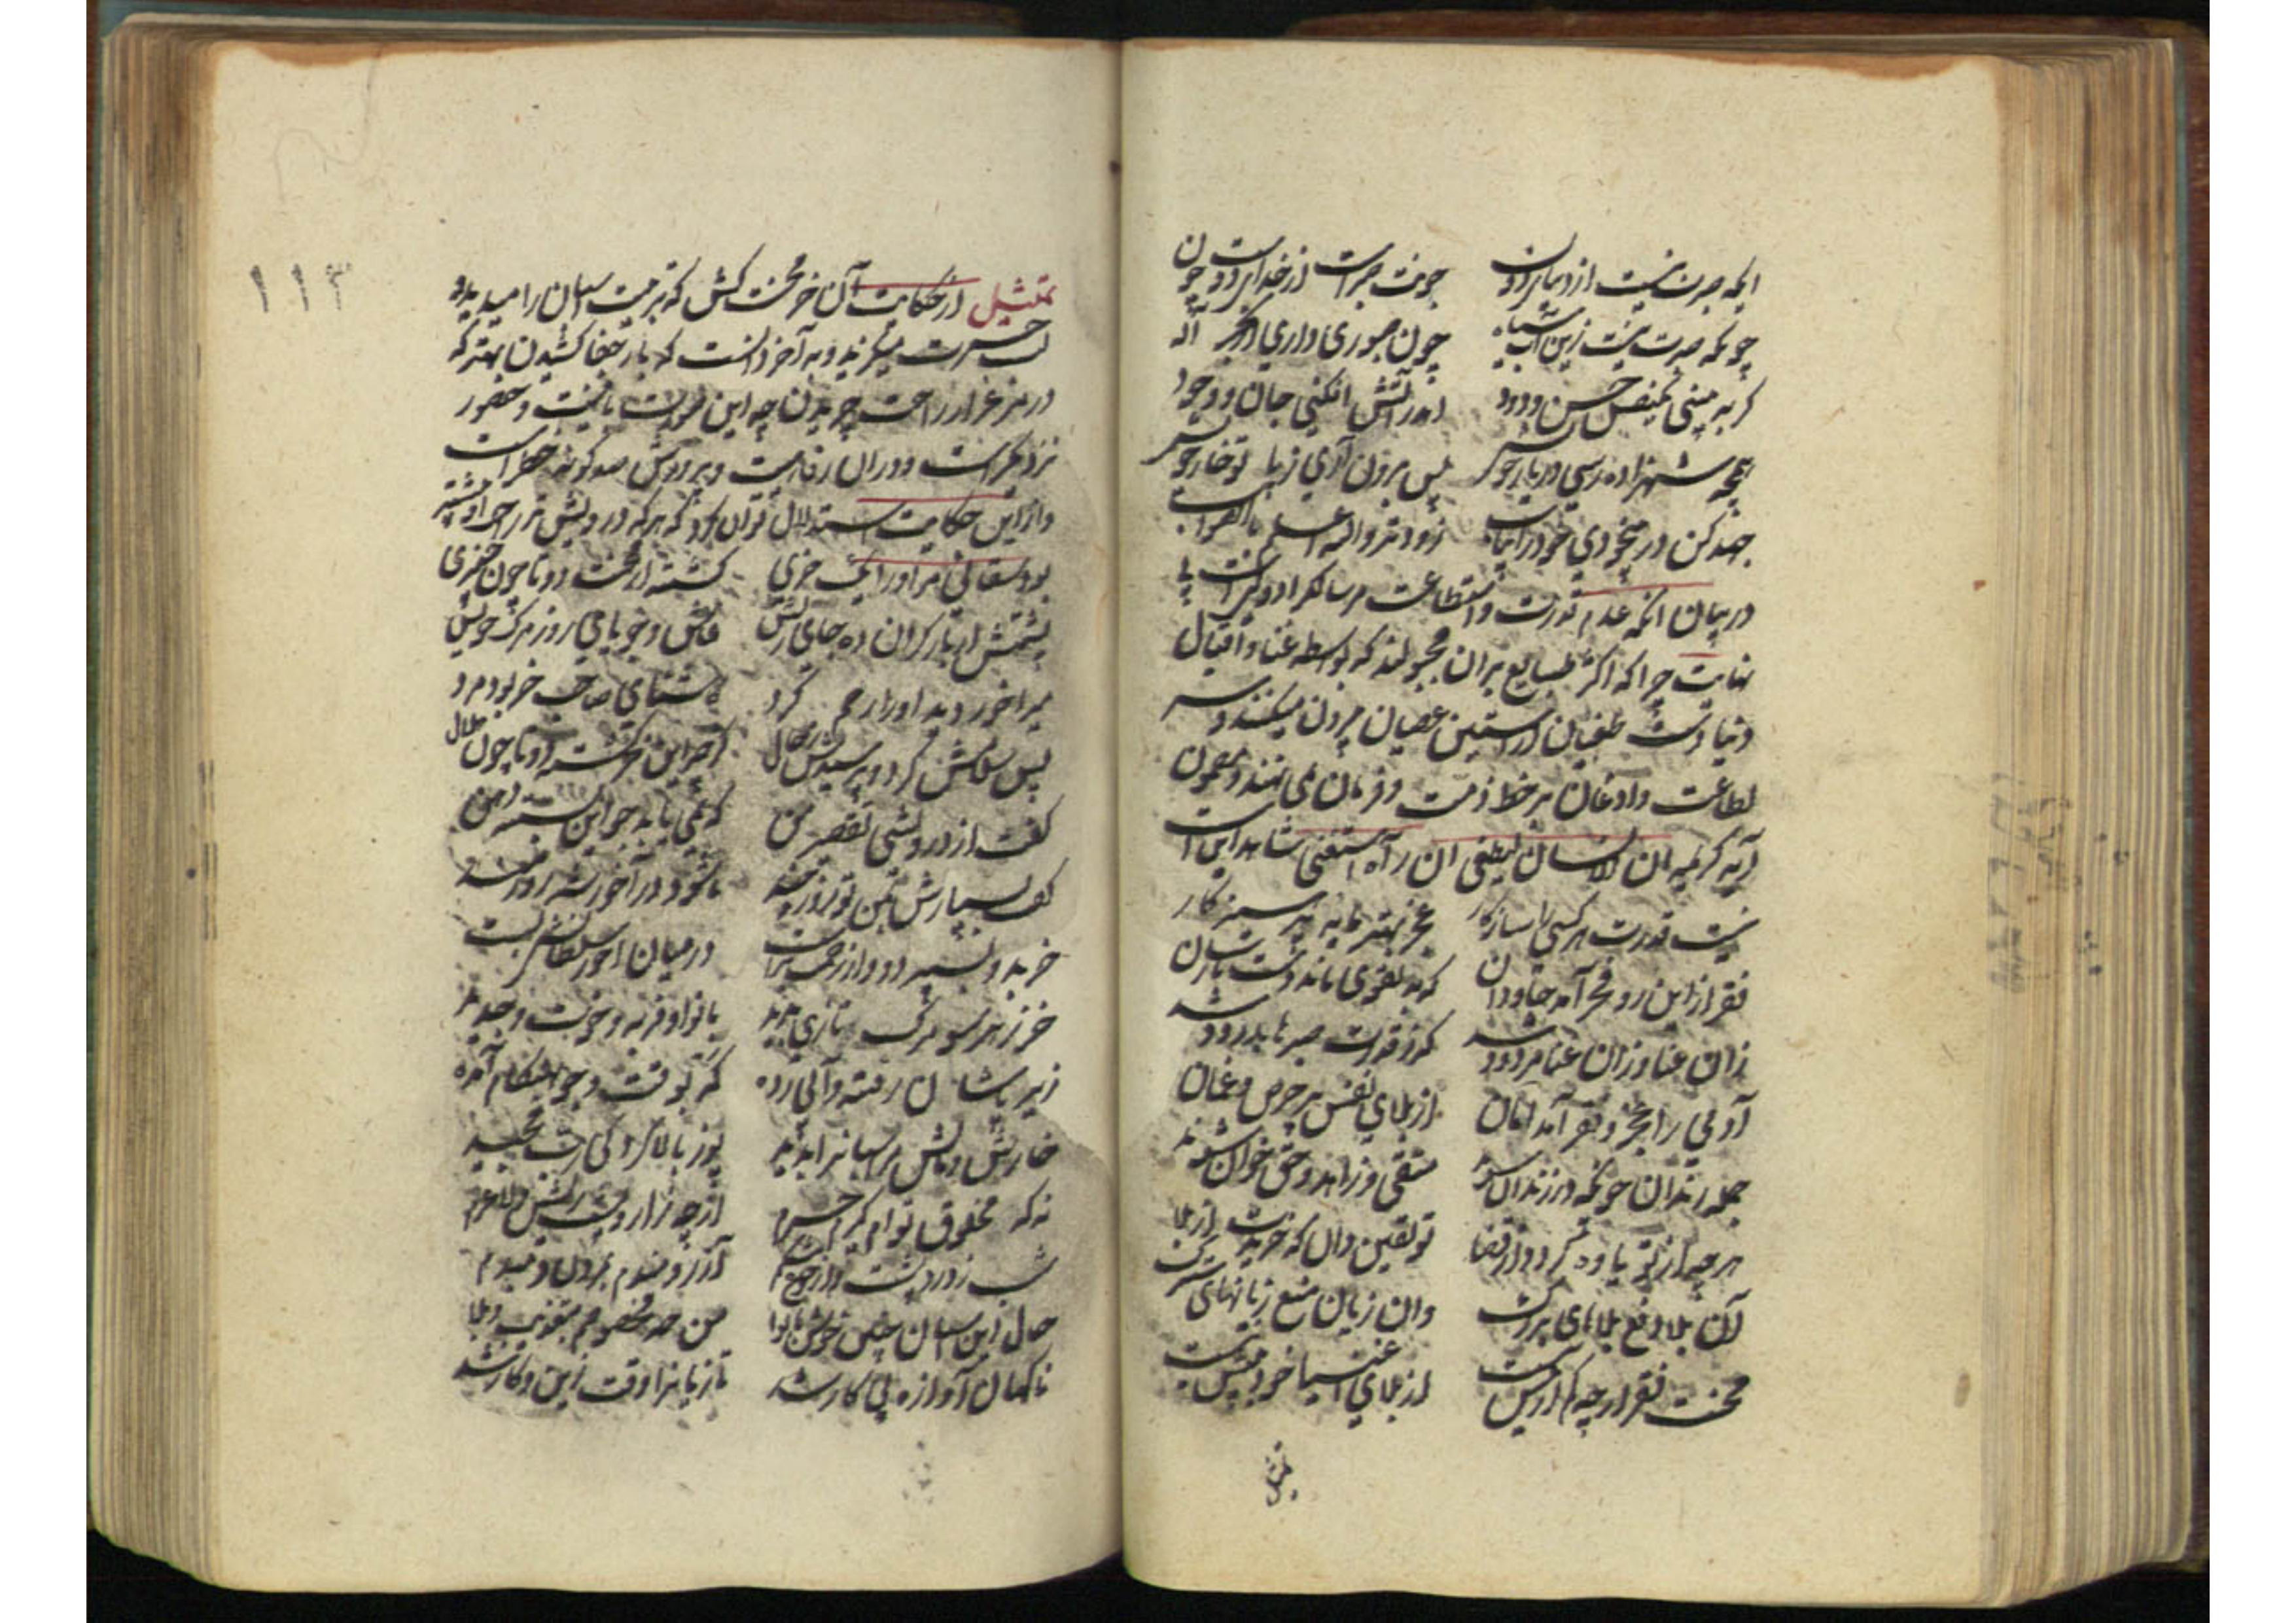 ایکه صبرت نیست از دنیای دون چونت صبرست از خدای دوست چون
چونکه صبرت نیست زین آب سیاه چون صبوری داری از چشمه اله
گر ببینی یکنفس حسن ودود اندر آتش افکنی جان و وجود
همچه شهزاده رسی در یار خویش پس برون آری ز پا تو خار خویش
جهد کن در بیخودی خود را بیاب زودتر والله اعلم بالصواب
در بیان آنکه عدم قدرت و استطاعت مر سالک را دولتیست بی
نهایت چرا که اکثر طبایع بر آن مجبولند که بواسطه غنا و اقبال
دنیا دست طغیان از آستین عصیان بیرون میکنند و سر
اطاعت و اذعان بر خط ذمت و فرمان نمی نهند و مضمون
آیه کریمه ان الانسان لیطغی ان رآه استغنی شاهد این است
نیست قدرت هر کسی را سازکار عجز بهتر مایه پرهیزکار
فقر از این رو فخر آمد جاودان که به تقوی ماند دست نارسان
زان غنا و زان غنی مردود شد که ز قدرت صبرها بدرود شد
آدمی را عجز و فقر آمد امان از بلای نفس پر حرص و غمان
جمله رندان چونکه در زندان بوند متقی و زاهد و حق خوان شوند
هر چه از تو یاوه گردد از قضا تو یقین دان که خریدت از بلا
آن بلا دفع بلاهای بزرگ وان زیان منع زیانهای سترگ
محنت فقر ار چه کم از نیش نیست از بلای اغنیا خود بیش نیست
تمثیل
۱۱۳
تمثیل از حکایت آن خر محنت کش که تربیت اسبان را میدید و
لب حسرت میگزید و به آخر دانست که بار جفا کشیدن بهتر که
در مرغزار راحت چریدن چه این
وازاین حکایت استدلال توان کرد که هر که درویش تر راحت او بیشتر
بود سقائی مر او را یک خری گشته از محنت دو تا چون چنبری
پشتش از بار گران ده جای ریش عاشق و جویای روز مرگ خویش
میر آخور دید او را رحم کرد کاشنای صاحب خر بود مرد
پس سلامش کرد و پرسیدش ز حال کز چه این خر گشت دو تا چون هلال
گفت از درویشی و تقصیر من که نمی یابد جو این بسته دهن
گفت بسپارش بمن تو روز چند تا شود در آخور شه زورمند
خر بدو بسپرد و از زحمت برست در میان آخور سلطانش بست
خر ز هر سو مرکب تازی بدید با نوا و فربه و خوب و جدید
زیر پاشان رفته و آبی زده که بوقت و جو بهنگام آمده
خارش و مالش مر اسبانرا بدید پوز بالا کرد کای رب مجید
نه که مخلوق توام گیرم خرم از چه زار و پشت ریش و لاغرم
شب ز درد پشت و از جوع شکم آرزومندم بمردن دم بدم
حال این اسبان چنین خوش با نوا من چه مخصوصم بتعذیب و بلا
ناگهان آوازه پیکار شد تازیانرا وقت زین و کار شد